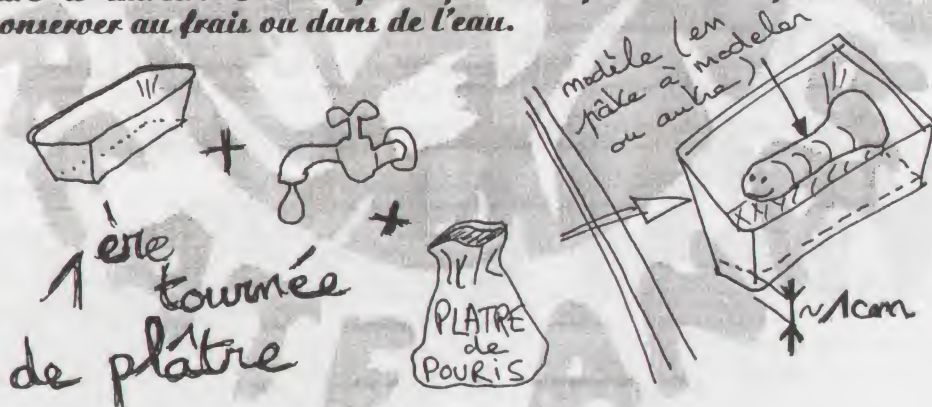 conserver au frais ou dans de l'eau.
modèle (en
pâte à modeler
ou autre)
1ère tournée
de plâtre
PLATRE
de
POURIS
~1cm